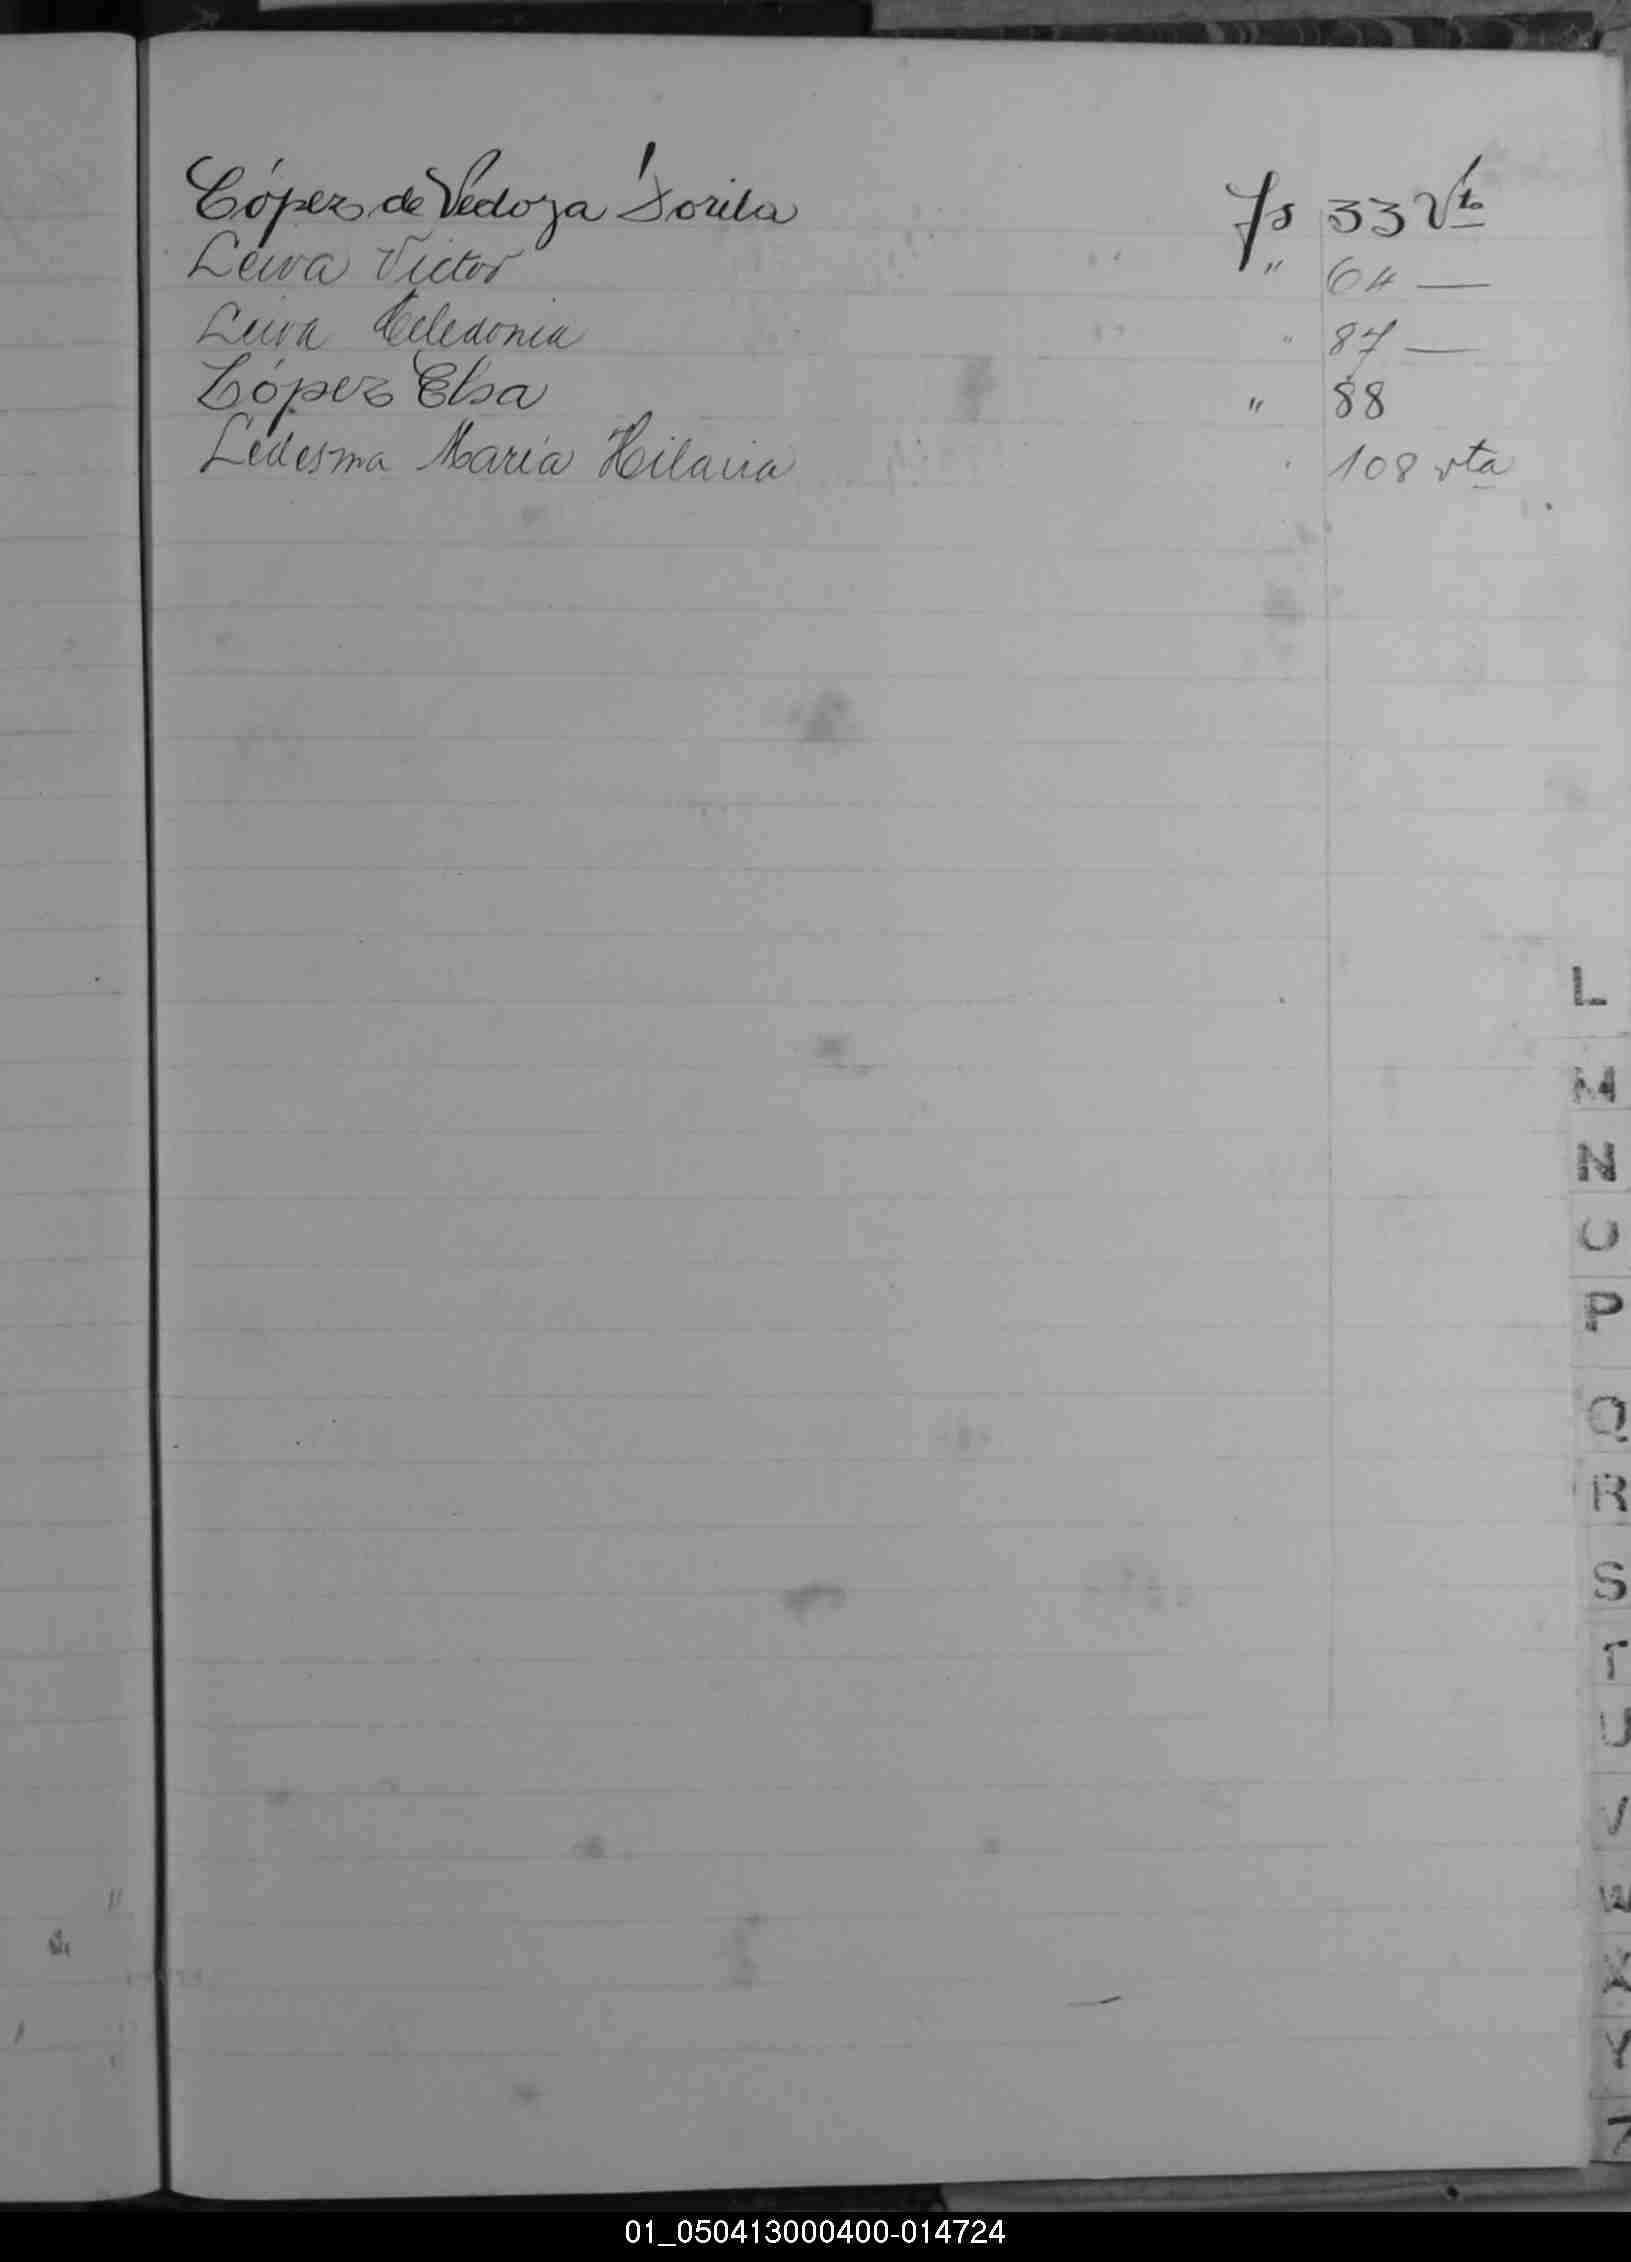 López de Vedoya Dorila fs 33 Vta
Leiva Victor " 64 —
Leiva Celedonia " 87 —
López Elsa " 88
Ledesma María Hilaria " 108 vta
L
M
N
O
P
Q
R
S
T
U
V
W
X
Y
Z
01_050413000400-014724